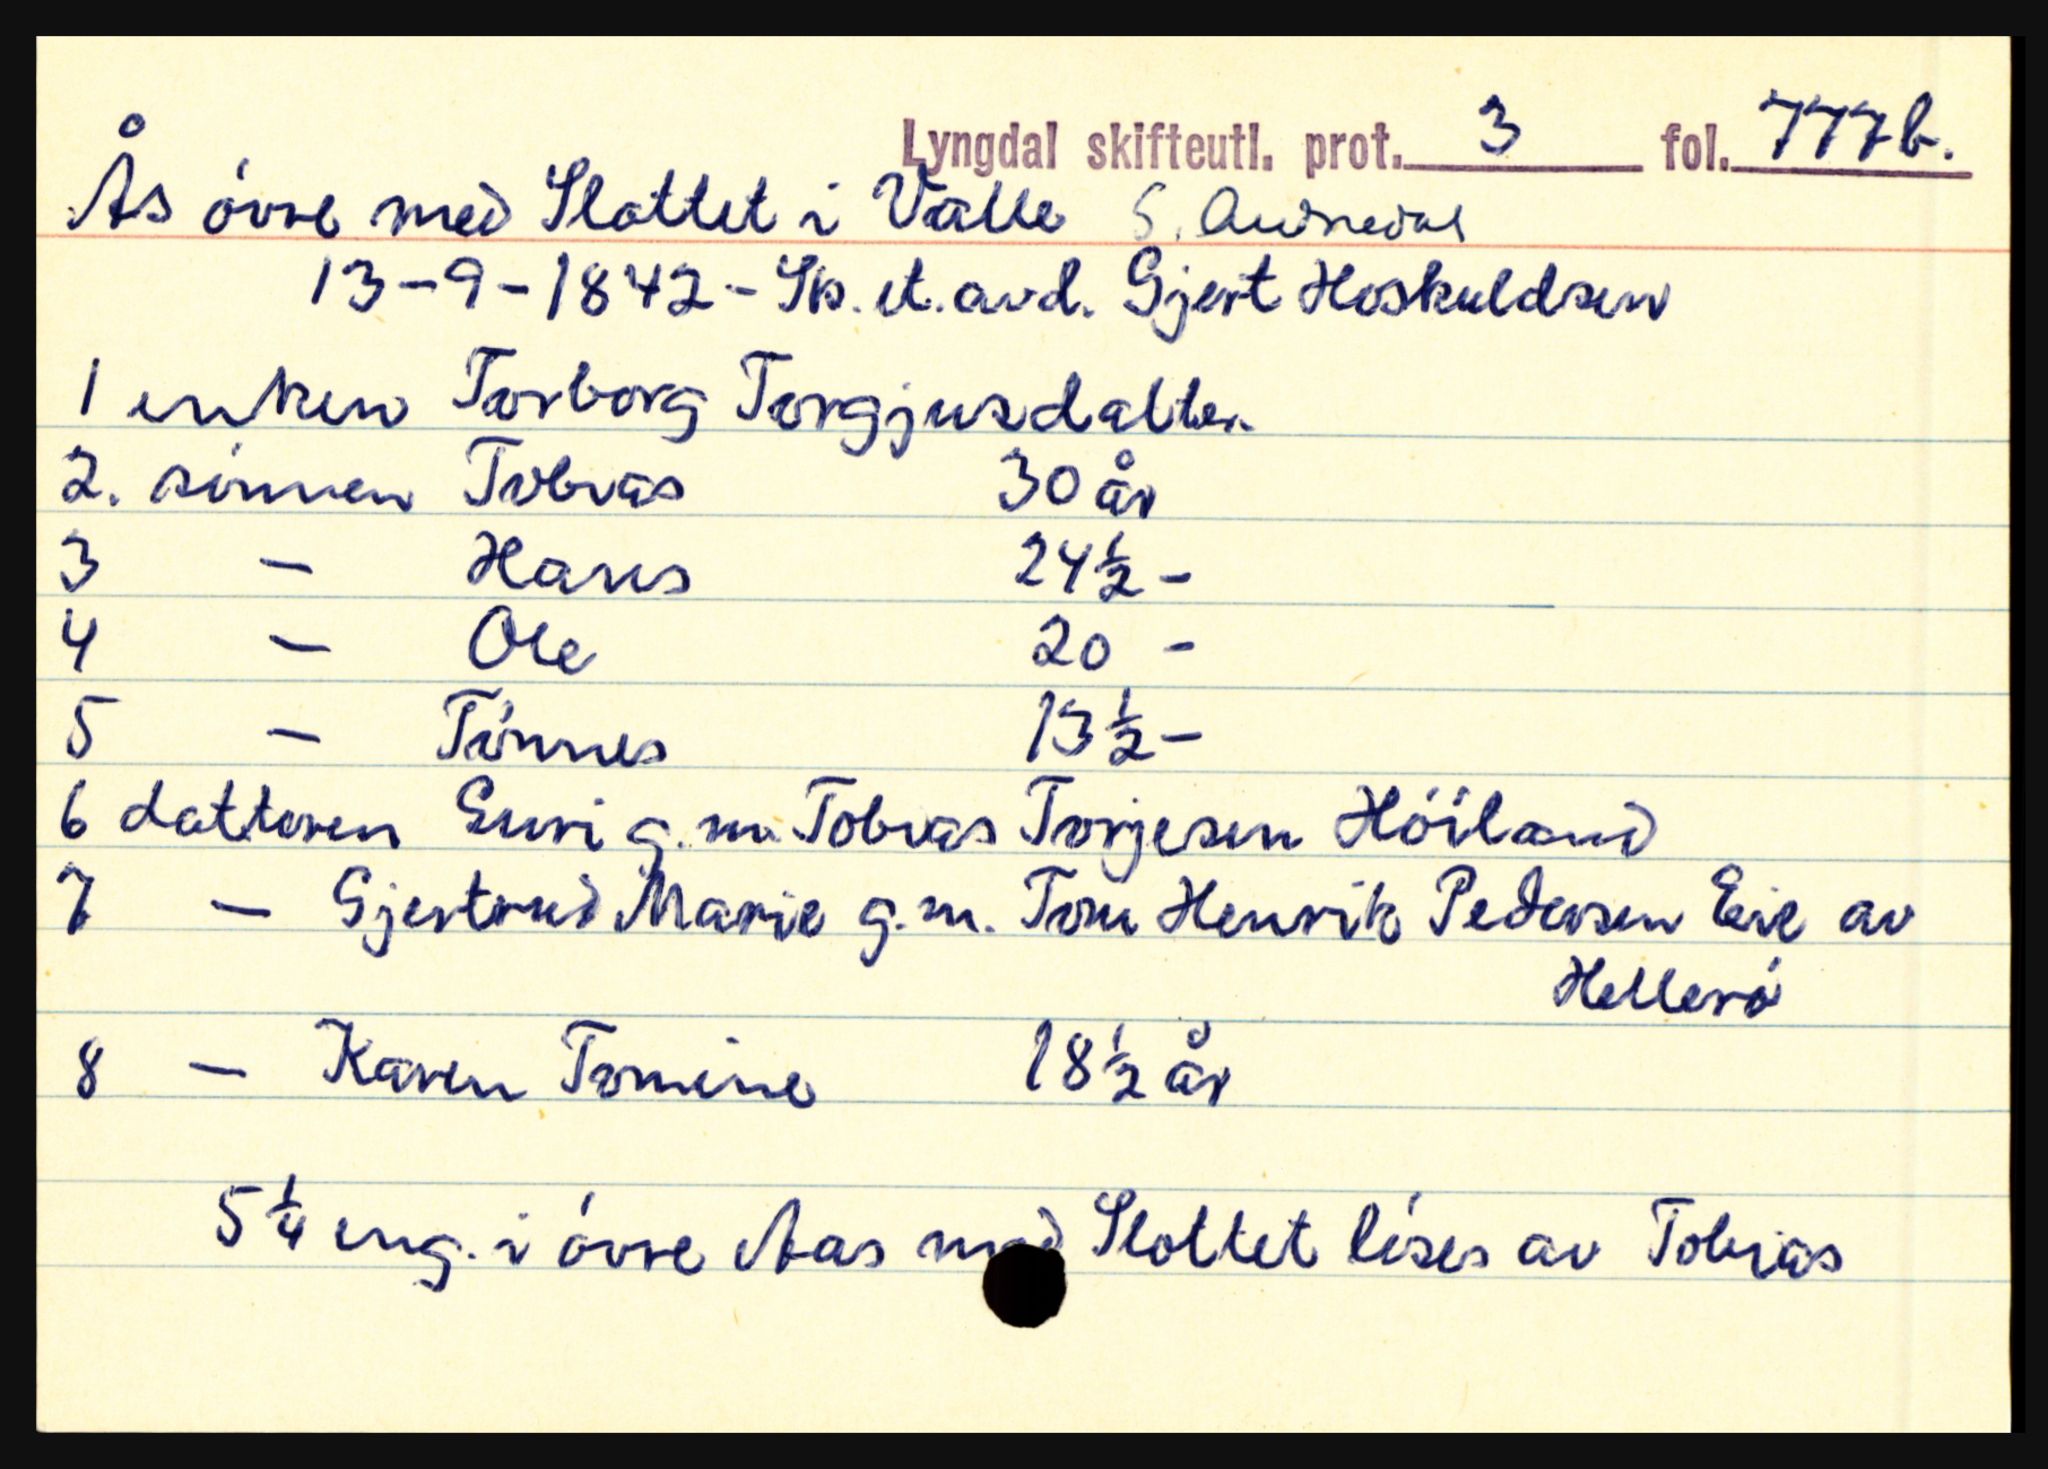 Lyngdal skifteutl. prot. 3 fol. 777b.
Ås óvre med Slottet i Valle S. Audnedal
13-9-1842 - Sk. et. avd. Gjert Hoskuldsen
1 enken Torborg Torgjusdatter
2. sónnen Tobias 30 år
3 - Hans 24½ -
4 - Ole 20 -
5 - Tónnes 13½ -
6 datteren Guri g.m. Tobias Torjesen Hóiland
7 - Gjertrud Marie g.m. Tom Henrik Pedersen Eie av
Helleró
8 - Karen Tomine 18½ år
5¼ eng. i óvre Aas med Slottet lóses av Tobias